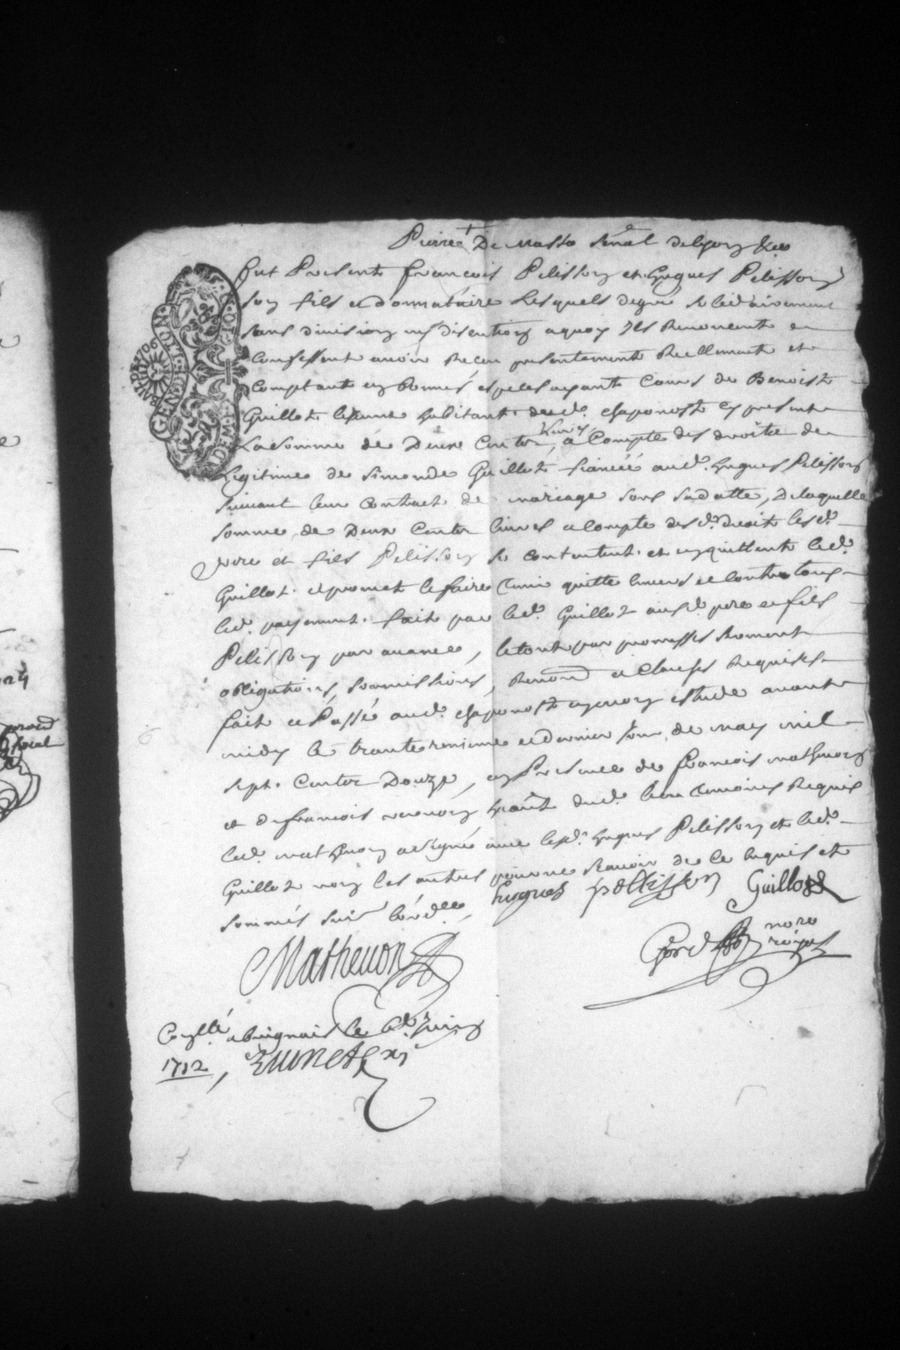 Pierre De Masso Senal de Lyon &c
fut Presente francois Pelisson et hugues Pelisson
son fils et donnataire Lesquels de gré solidairement
sans division ny discution a quoy Ils Renoncent
Confessent avoir Receu presentement Reellement et
Comptant en bonnes especes ayants Cours de Benoist
Guillot habitant dud. chaponost Cy present
La somme de Deux Cents livres a Compte des droits de
legitime de Simonde Guillot fiancée aud. hugues Pelisson
suivant leur Contract de mariage sous sa datte, de laquelle
somme de Deux Cents livres a Compte desd. droits lesd.
pere et fils Pelisson se contentent et en quittent led.
Guillot et promet le faire tenir quitte envers et contre tous
led. payement fait par led. Guillot ausd. pere et fils
Pelisson par avance, le tout par promesses serment
obligations, soumissions, Renond et Clauses Requises
fait et Passé aud. chaponost en mon estude avant
midy le trante unieme et dernier Jour de may mil
sept Cents Douze, en Presence de francois mathevon
et de francois habant dud. lieu temoins Requis
led. mathevon a signé avec lesd. hugues Pelisson et led.
Guillot non les autres pour ne scavoir de ce Requis et
sommés suivt l'ord.ce hugues pellisson Guillot
Mathevon
nore
royal
Conllé a brignais le 6e Juin
1712,
GEN DE LION